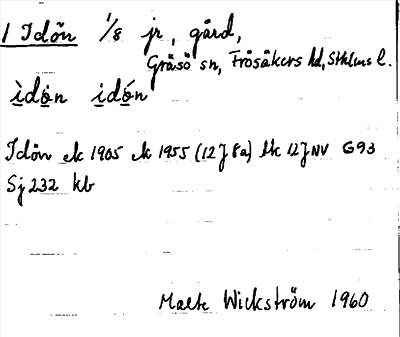 1 Idön 1/8 jr, gård,
Gräsö sn, Frösåkers hd, Sthlms l.
ìdön idón
Idön ek 1905 ek 1955 (12J8a) tk 12J NV G93
Sj 232 kb
Malte Wickström 1960